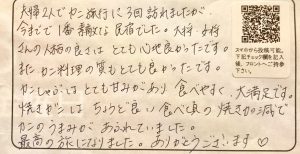 夫婦2人でカニ旅行に3回訪れましたが、
今までで1番素敵な民宿でした。大将・女将
さんの人柄の良さはとても心地良かったです。
またカニ料理の質もとても良かったです。
カニしゃぶはとても甘みがあり食べやすく、大満足です。
焼きガニはちょうど良い食べ頃の焼き加減で
カニのうまみがあふれていました。
最高の旅になりました。ありがとうございます♡
スマホから投稿可能。
下記チェック欄を記入
後、フロントへご持参
下さい。